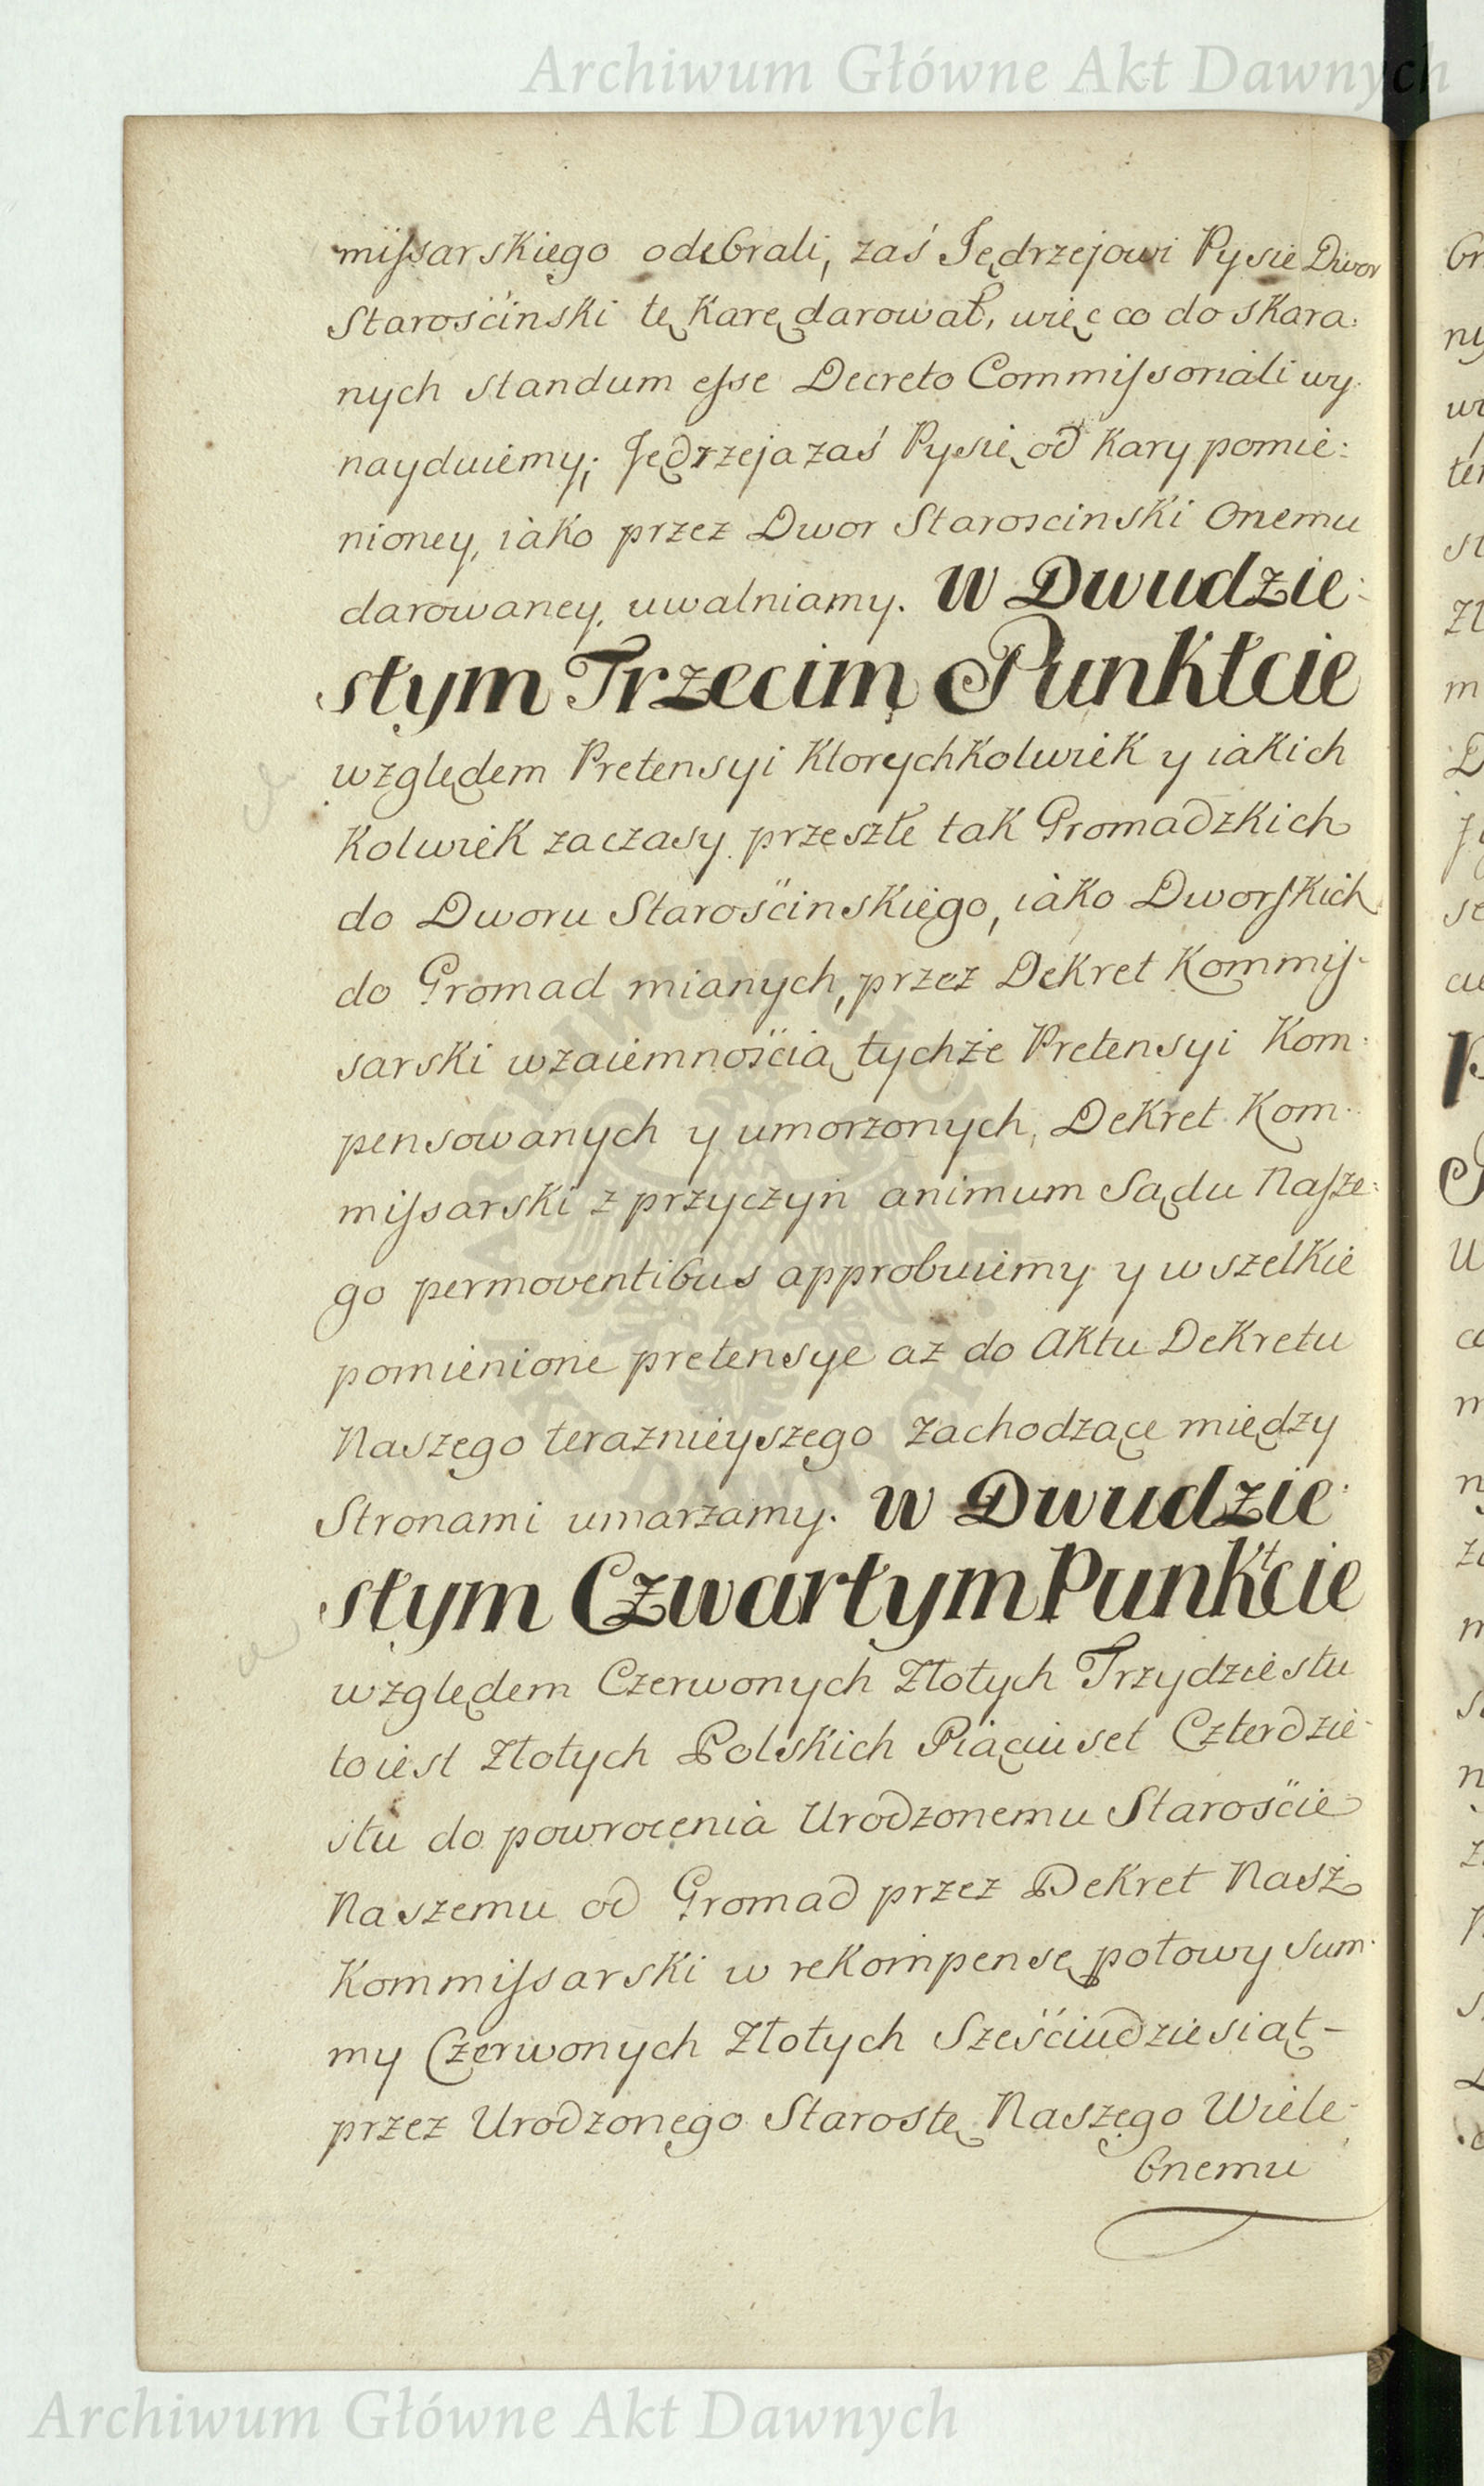 Archiwum Główne Akt Dawnych
miſsarskiego odebrali, zaś Jędrzejowi Pysie Dwor
Starosćinski tę Karę darował, więc co do skara:
nych standum eſse Decreto Commiſsoriali wy:
nayduiemy; Jędrzeja zaś Pysię od Kary pomie:
nioney, iako przez Dwor Staroscinski Onemu
darowaney, uwalniamy. W Dwudzie:
stym Trzecim Punktcie
względem Pretensyi Ktorychkolwiek y iakich
Kolwiek za czasy przeszłe tak Gromadzkich
do Dworu Starosćinskiego, iako Dworſkich
do Gromad mianych, przez Dekret Kommiſ-
sarski wzaiemnośćią tychże Pretensyi Kom-
pensowanych y umorzonych, Dekret Kom-
miſsarski z przyczyn animum Sądu Naſze:
go permoventibus approbuiemy y wszelkie
pomienione pretensye aż do Aktu Dekretu
Naszego teraznieyszego zachodzące między
Stronami umarzamy. W Dwudzie-
stym Czwartym Punktcie
względem Czerwonych Złotych Trzydziestu
to iest Złotych Polskich Piąciuset Czterdzie-
stu do powrocenia Urodzonemu Starosćie
Naszemu od Gromad przez Dekret Nasz
Kommiſsarski w rekompensę połowy Sum-
my Czerwonych Złotych Sześćiudziesiąt-
przez Urodzonego Starostę Naszego Wiele-
bnemu
Archiwum Główne Akt Dawnych